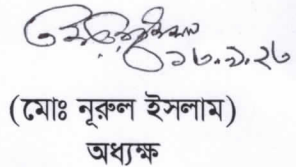 ১৮.১.২৬
(মোঃ নূরুল ইসলাম)
অধ্যক্ষ